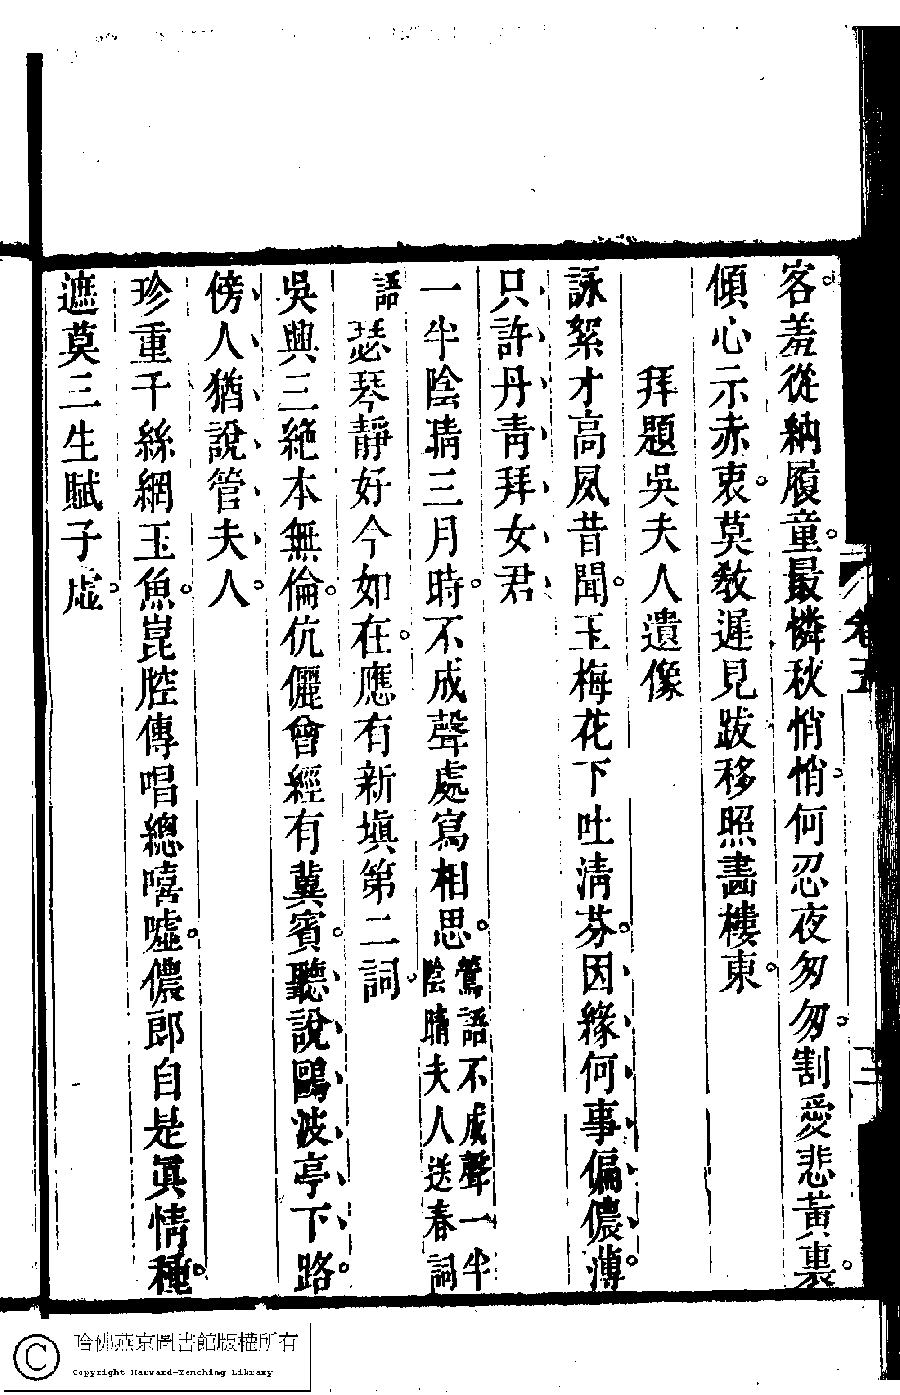 客羞從納履童最憐秋悄悄何忍夜匆匆割愛悲黃裏
傾心示赤衷莫教遲見跋移照畵樓東
拜題吳夫人遺像
詠絮才高夙昔聞玉梅花下吐清芬因緣何事偏儂薄
只許丹青拜女君
一半陰晴三月時不成聲處寫相思鶯語不成聲一半
陰晴夫人送春詞
語瑟琴靜好今如在應有新塡第二詞
吳興三絶本無倫伉儷曾經有冀賓聽說鷗波亭下路
傍人猶說管夫人
珍重千絲網玉魚崑腔傳唱總嘻噓儂郎自是眞情種
遮莫三生賦子虛
卷五
三
哈佛燕京圖書館版權所有
Copyright Harvard-Yenching Library